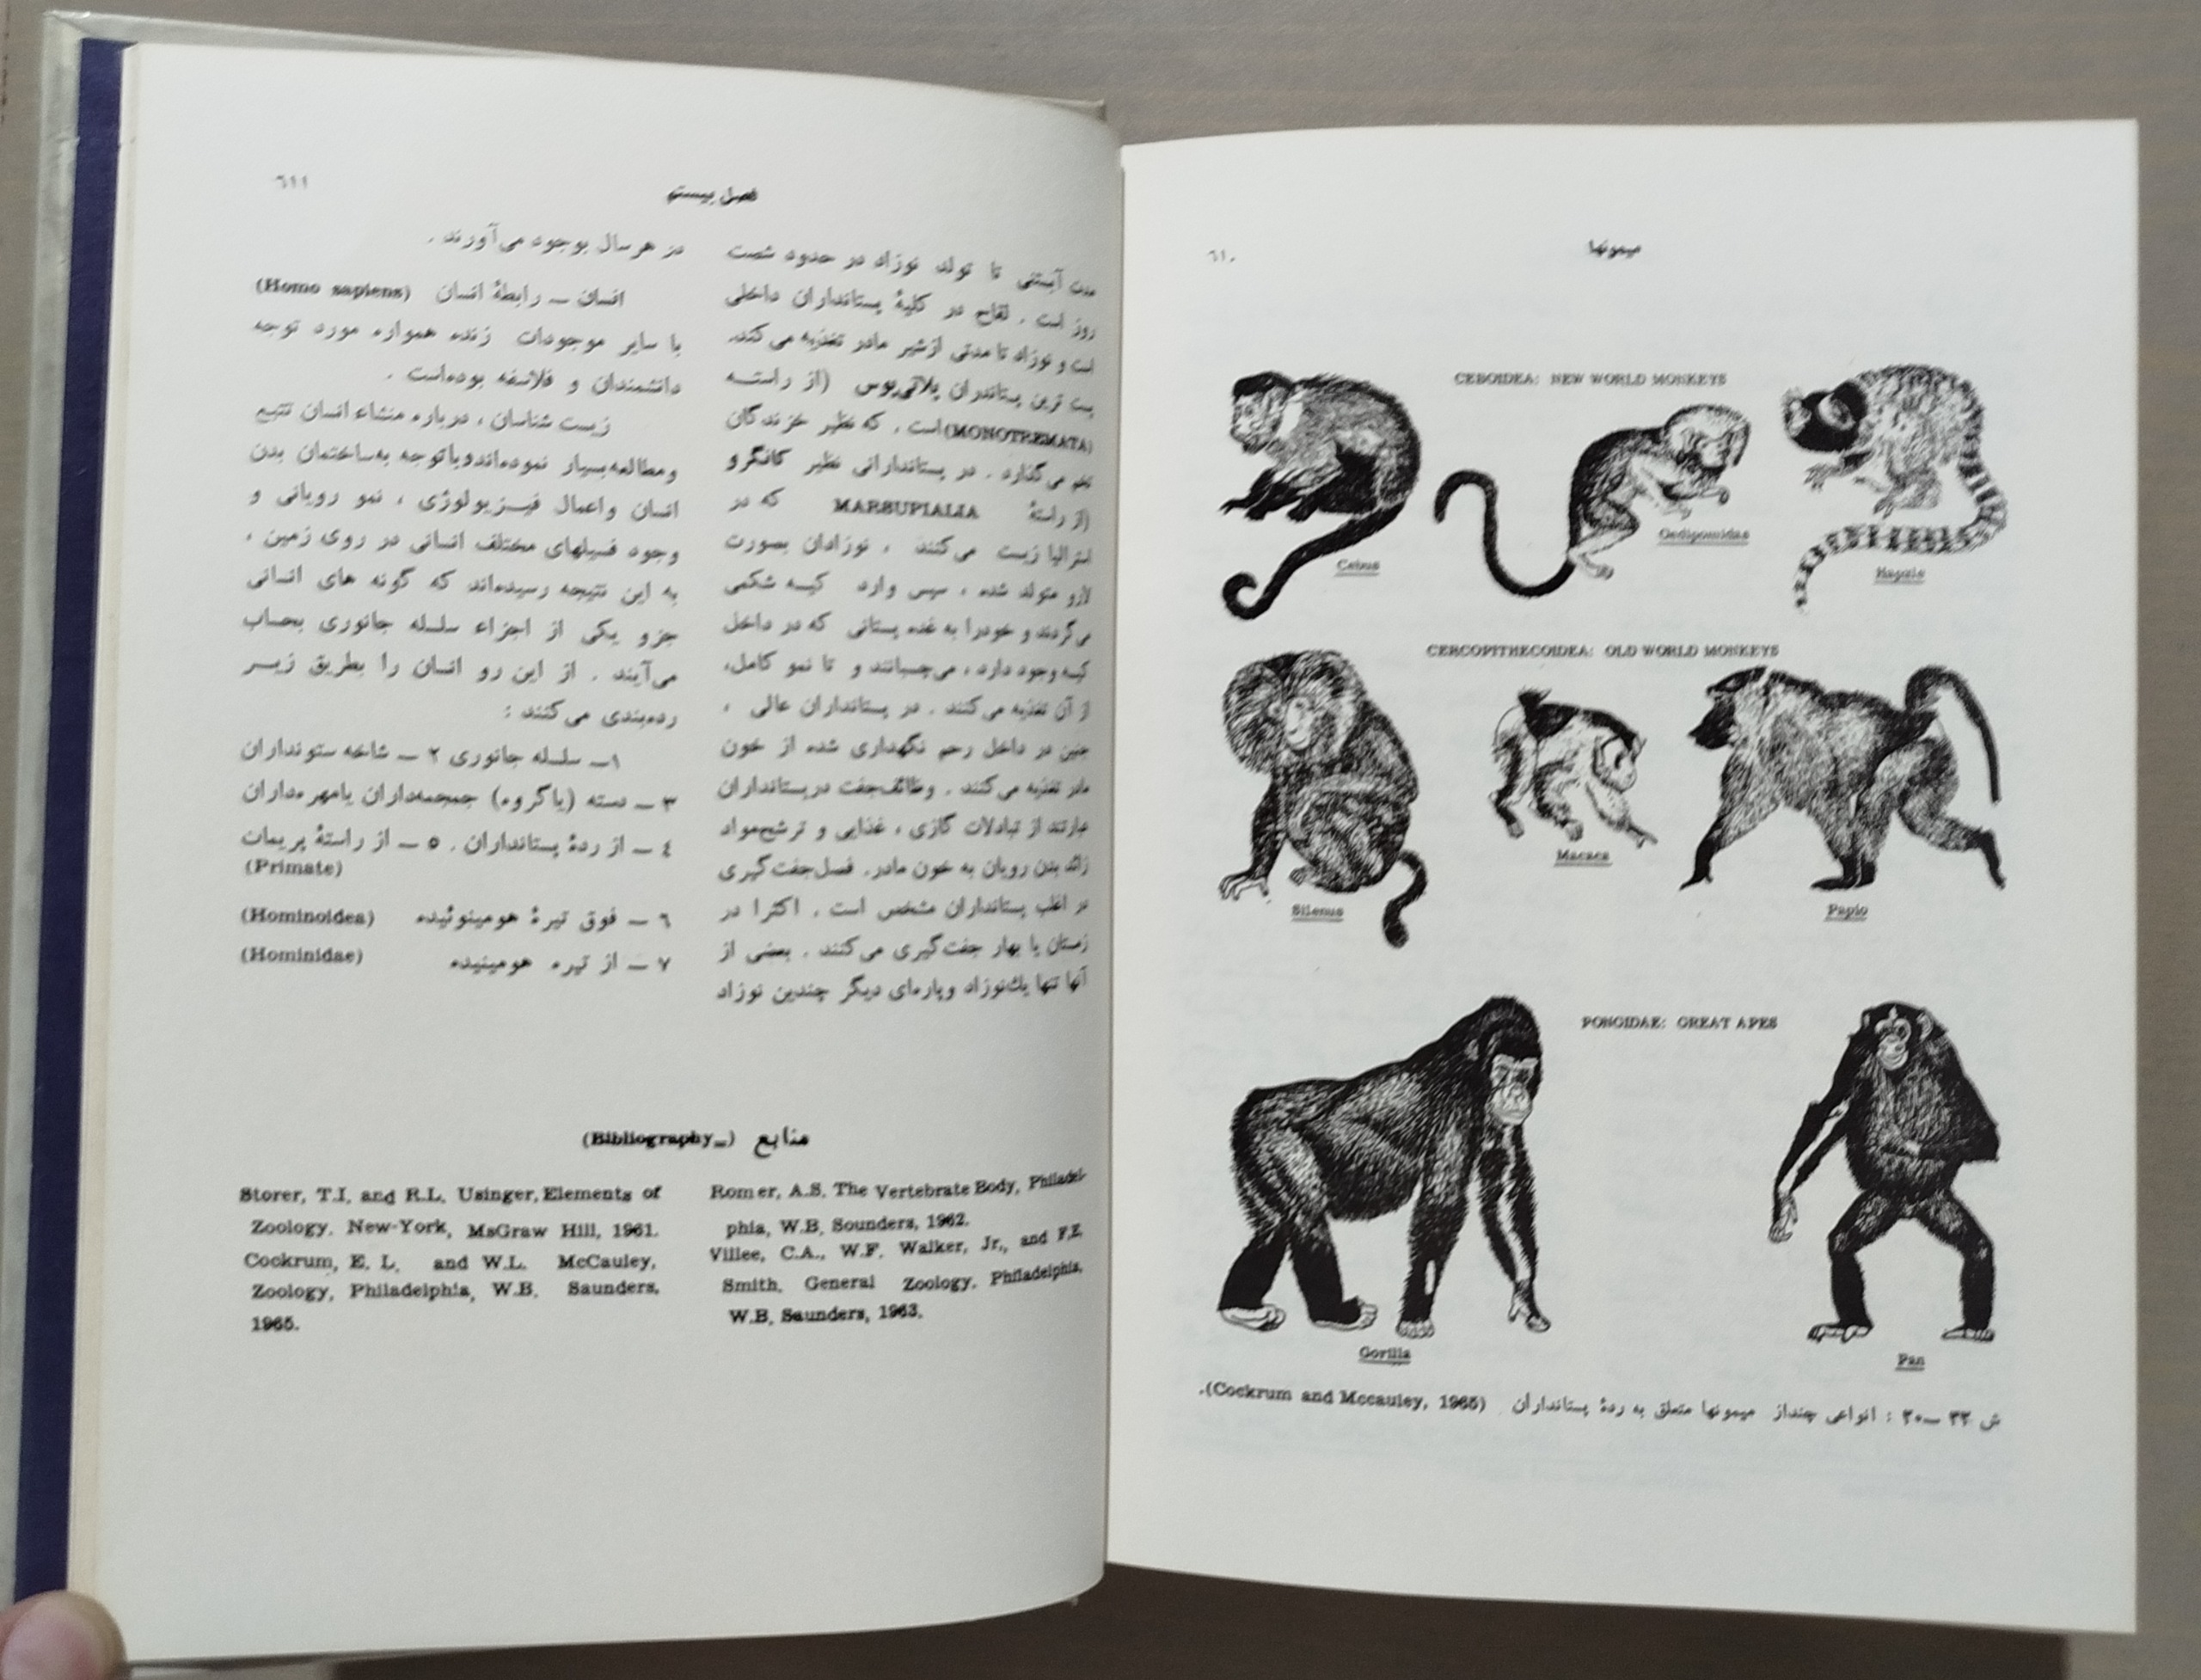 ٦١٠
میمونها
CEBOIDEA: NEW WORLD MONKEYS
Cebus
Oedipomidas
CERCOPITHECOIDEA: OLD WORLD MONKEYS
Silenus
Macaca
Papio
PONGIDAE: GREAT APES
Gorilla
Pan
ش ٣٣ــ٢٠ : انواعی چنداز میمونها متعلق به ردهٔ پستانداران (Cockrum and Mccauley, 1965).
فصل بیستم
٦١١
مدت آبستنی تا تولد نوزاد در حدود شصت
روز است . لقاح در کلیهٔ پستانداران داخلی
است و نوزاد تا مدتی ازشیر مادر تغذیه می‌کند.
پست ترین پستانداران پلاتی‌پوس (از راستــه
(MONOTREMATA) است . که نظیر خزندگان
تخم می‌گذارد . در پستاندارانی نظیر کانگرو
(از راستهٔ MARSUPIALIA که در
استرالیا زیست می‌کنند ، نوزادان بصورت
لارو متولد شده ، سپس وارد کیسه شکمی
می‌گردند و خودرا به غده پستانی که در داخل
کیسه وجود دارد ، می‌چسبانند و تا نمو کامل،
از آن تغذیه می‌کنند . در پستانداران عالی ،
جنین در داخل رحم نگهداری شده از خون
مادر تغذیه می‌کنند . وظائف‌جفت درپستانداران
عبارتند از تبادلات گازی ، غذایی و ترشح‌مواد
زائد بدن رویان به خون مادر. فصل‌جفت‌گیری
در اغلب پستانداران مشخص است . اکثرا در
زمستان یا بهار جفت‌گیری می‌کنند . بعضی از
آنها تنها یك‌نوزاد وپاره‌ای دیگر چندین نوزاد
در هرسال بوجود می‌آورند .
انسان ــ رابطهٔ انسان (Homo sapiens)
با سایر موجودات زنده همواره مورد توجه
دانشمندان و فلاسفه بوده‌است .
زیست شناسان ، درباره منشاء انسان تتبع
ومطالعه‌بسیار نموده‌اندوباتوجه به‌ساختمان بدن
انسان واعمال فیـزیولوژی ، نمو رویانی و
وجود فسیلهای مختلف انسانی در روی زمین ،
به این نتیجه رسیده‌اند که گونه های انسانی
جزو یکی از اجزاء سلسله جانوری بحساب
می‌آیند . از این رو انسان را بطریق زیــر
رده‌بندی می‌کنند :
١ــ سلسله جانوری ٢ ــ شاخه ستونداران
٣ ــ دسته (یاگروه) جمجمه‌داران یامهره‌داران
٤ ــ از ردهٔ پستانداران . ٥ ــ از راستهٔ پریمات
(Primate)
٦ ــ فوق تیرهٔ هومینوئیده (Hominoidea)
٧ ــ از تیره هومینیده (Hominidae)
منابع (Bibliography_)
Storer, T.I. and R.L. Usinger, Elements of
Zoology. New-York, MsGraw Hill, 1961.
Cockrum, E. L. and W.L. McCauley,
Zoology, Philadelphia, W.B. Saunders,
1965.
Romer, A.S. The Vertebrate Body, Philadel-
phia, W.B. Sounders, 1962.
Villee, C.A., W.F. Walker, Jr., and F.E.
Smith, General Zoology, Philadelphia,
W.B. Saunders, 1963.